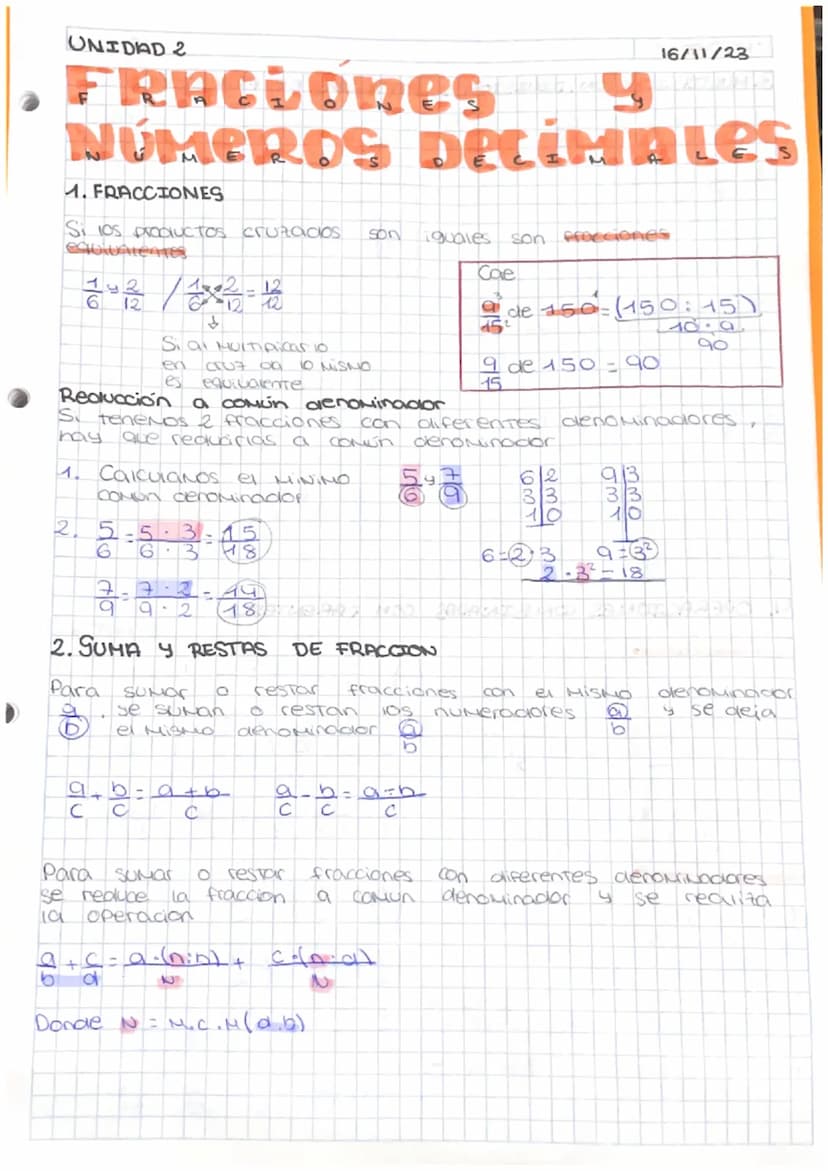 UNIDAD 2
16/11/23
FRACIONES Y
NÚMEROS DECIMALES
1. FRACCIONES
Si los productos cruzados son iguales son fracciones
equivalentes
1/6 y 2/12 / 1/6 2/12 = 12/12
Si al multiplicar lo
en cruz da lo mismo
es equivalente
Coe
9/15 de 150 = (150 : 15)
10 · 9
90
9/15 de 150 = 90
Reducción a común denominador
Si tenemos 2 fracciones con diferentes denominadores,
hay que reducirlas a común denominador
1. Calculamos el minimo
comun denominador
5/6 y 7/9
6|2 9|3
3|3 3|3
1|0 1|0
6=2·3 9=3²
2·3²=18
2. 5/6 = 5·3/6·3 = 15/18
7/9 = 7·2/9·2 = 14/18
2. SUMA Y RESTAS DE FRACCION
Para sumar o restar fracciones con el mismo denominador
a/b, se suman o restan los numeradores a/b y se deja
el mismo denominador a/b
a/c + b/c = a+b/c a/c - b/c = a-b/c
Para sumar o restar fracciones con diferentes denominadores
se reduce la fraccion a comun denominador y se realiza
la operacion
a/b + c/d = a·(n:b)/N + c·(n:d)/N
Donde N = M.C.M(d.b)